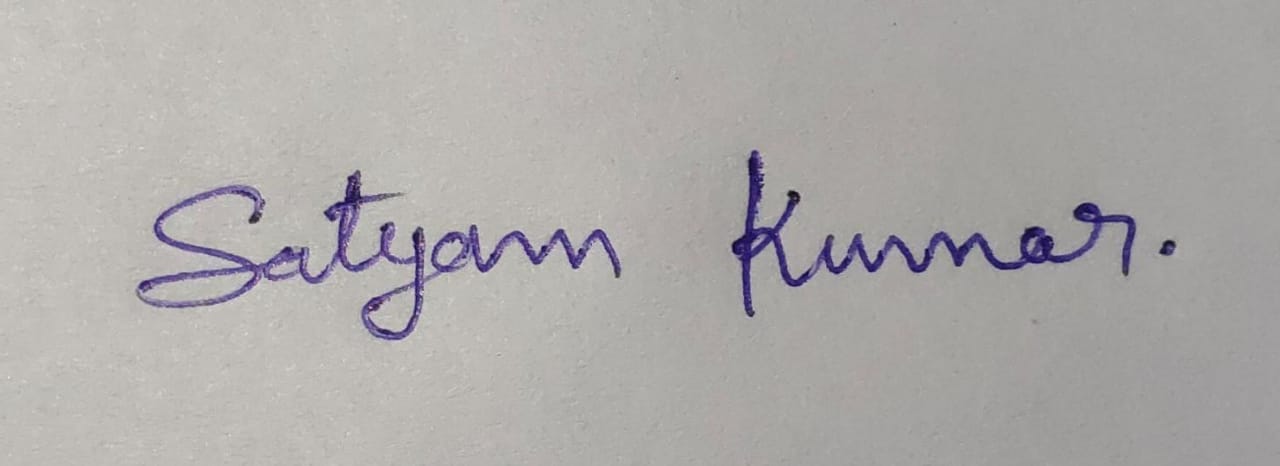 Satyam Kumar.